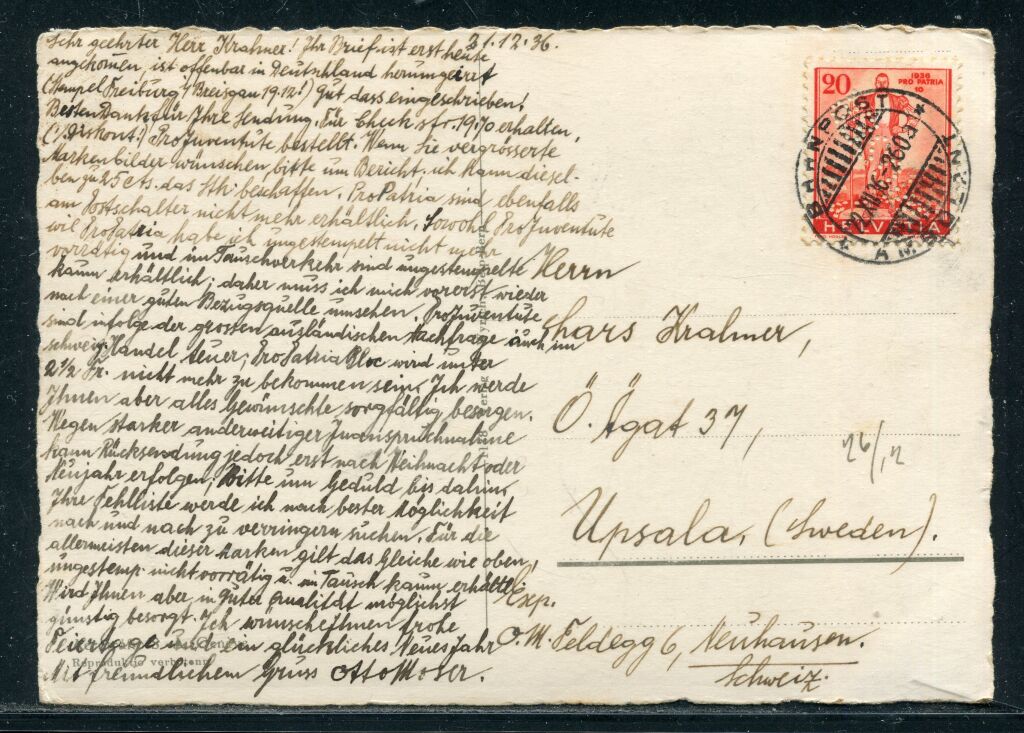 Sehr geehrter Herr Krahmer! Ihr Brief ist erst heute 21.12.36.
angekommen, ist offenbar in Deutschland herumgeirrt
(Stempel Freiburg i/Breisgau 19.12!) Gut dass eingeschrieben!
Besten Dank für Ihre Sendung. Für Check sfr. 19.70 erhalten,
(./. Diskont!) ProJuventute bestellt. Wenn Sie vergrösserte
Markenbilder wünschen, bitte um Bericht. ich kann diesel-
ben zu 25 cts. das Stk. beschaffen. ProPatria sind ebenfalls
am Postschalter nicht mehr erhältlich. Sowohl ProJuventute
wie ProPatria habe ich ungestempelt nicht mehr
vorrätig und im Tauschverkehr sind ungestempelte
kaum erhältlich; daher muss ich mich vorerst wieder
nach einer guten Bezugsquelle umsehen. ProJuventute
sind infolge der grossen ausländischen Nachfrage auch im
schweiz. Handel teuer; ProPatria Bloc wird unter
2½ Fr. nicht mehr zu bekommen sein. Ich werde
Ihnen aber alles Gewünschte sorgfältig besorgen.
Wegen starker anderweitiger Inanspruchnahme
kann Rücksendung jedoch erst nach Weihnacht oder
Neujahr erfolgen; Bitte um Geduld bis dahin.
Ihre Fehlliste werde ich nach bester Möglichkeit
nach und nach zu verringern suchen. Für die
allermeisten dieser Marken gilt das Gleiche wie oben,
ungestemp. nicht vorrätig u. im Tausch kaum erhältl.
Wird Ihnen aber in guter Qualität möglichst
günstig besorgt. Ich wünsche Ihnen frohe
Feiertage und ein glückliches Neues Jahr
Mit freundlichem Gruss Otto Moser.
Reproduktio verboten
20
1936
PRO PATRIA
10
HELVETIA
BAHNPOST
AMBULANT
22.XII.36
Herrn
Lars Krahmer,
Ö. Ågat 37,
26/12
Upsala, (Sweden).
Exp.
O.M. Feldegg 6, Neuhausen.
Schweiz.